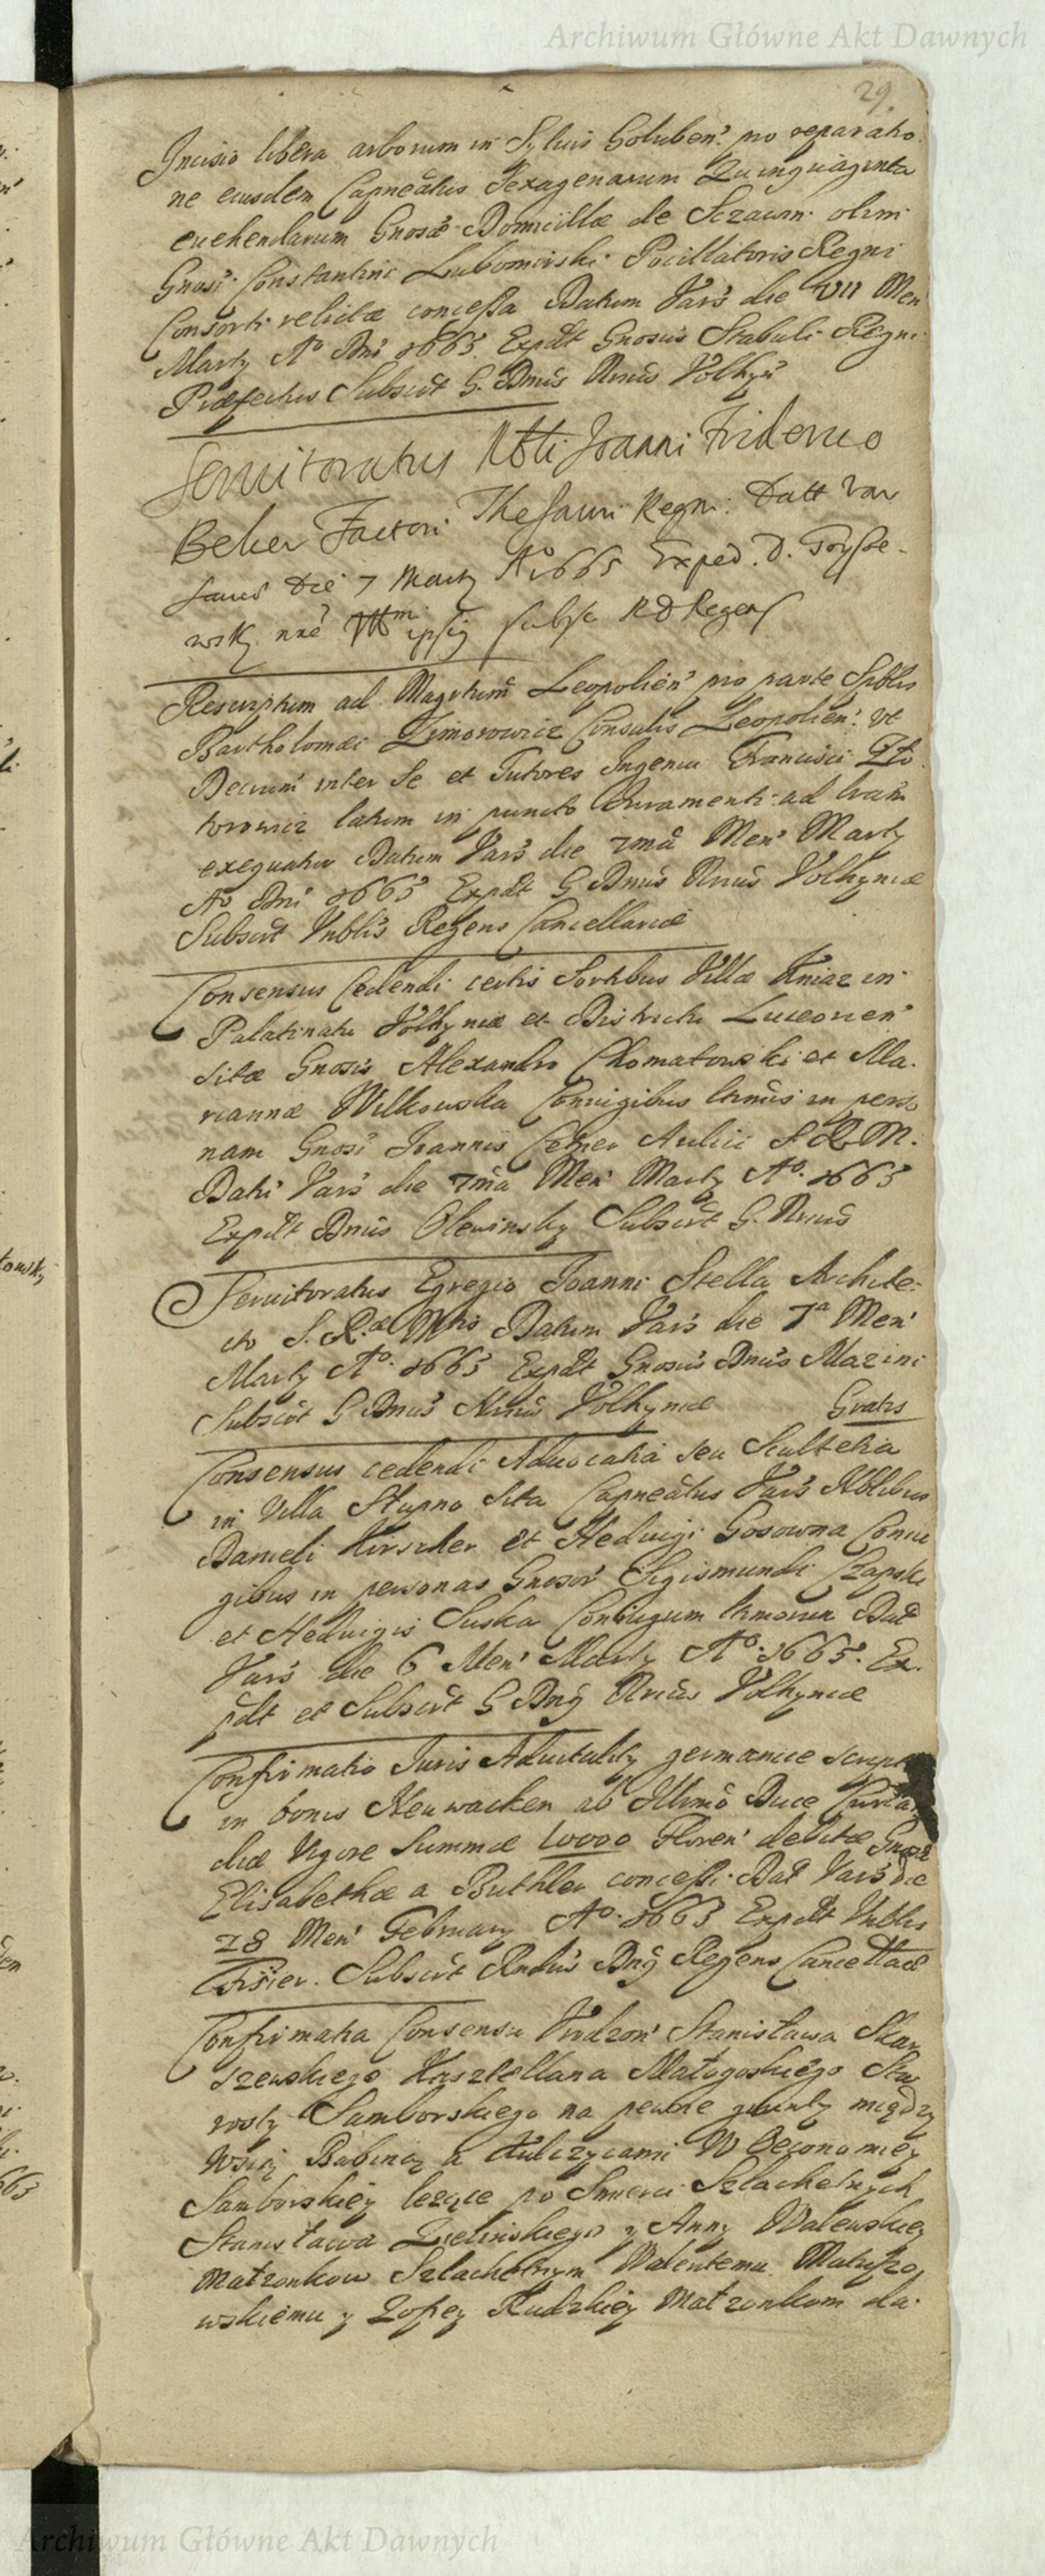 Archiwum Główne Akt Dawnych
29.
Incisio libera arborum in Syluis Goluben. pro reparatio
ne eiusdem Capneatus Sexagenarum Quinquaginta
euehendarum Gnosae Domicillae de Sczawin olim
Gnosi Constantini Lubomirski Pocillatoris Regni
Consorti relictae concessa Datum Vars die VII Men
Marty Ao Dni 1663. Expdt Gnosus Stabuli Regni
Praefectus Subscrt G. Dnus Rnus Volhyn
Seruitoratus Nbli Joanni Friderico
Beker Factori Thesauri Regni. Datt Var
sauiae Die 7 Marty Ao 1665 Exped. D.
subsc RD Regens
Rescriptum ad Magrtum Leopolien pro parte Spblis
Bartholomaei Zimorowicz Consulis Leopolien. vt
Decrum inter Se et Tutores Ingenui Francisci
torowicz latum in puncto Iuramenti ad
exequatur Datum Vars die 7ma Men Marty
Ao Dni 1663 Expdt G Dnus Rnus Volhyniae
Subscrt Vnblis Regens Cancellariae
Consensus Cedendi certis Sortibus Villae Kniaz in
Palatinatu Volhyniae et Districtu Luceorien
sitae Gnosis Alexandro Chomatowski et Ma-
riannae Wilkowska Coniugibus ltmis in perso
nam Gnosi Joannis Cetner Aulici S. R. M.
Dati Vars die 7ma Men Marty Ao. 1663
Expdt Dnus Olewinsky Subscrt G. Rnus
Seruitoratus Egregio Joanni Stella Archite-
cto S. R.ae Mtis Datum Vars die 7a Men
Marty Ao. 1663 Expdt Gnosus Dnus Mazini
Subscrt G Dnus Rnus Volhyniae Gratis
Consensus cedendi Aduocatia seu Scultetia
in Villa Slupno Sita Capneatus Vars Nblibus
Danieli Kirszler et Heduigi Gosowna Coniu
gibus in personas Gnosor Sigismundi Czapski
et Heduigis Suska Coniugum ltmorum Dat
Vars die 6 Men Marty Ao. 1663. Ex-
pdt et Subscrt G Dnus Rnus Volhyniae
Confirmatio Iuris Aduitality germanice script
in bonis Neuwacken ab Illmo Duce Curlan
diae Vigore Summae 10000 Floren debitae Gnosae
Elisabethae a Buthler concessi Dat Vars die
28 Men February Ao. 1663 Expdt Vnblis
Subscrt Rndus Dnus Regens Cancellariae
Confirmatia Consensu Vrdzon Stanisława Skar
szewskiego Kasztellana Małogoskiego Sta
rosty Samborskiego na pewne grunty między
Wsią Babiną a Kulczycami W Oeconomiey
Samborskiey lezące po Smierci Szlachetnych
Stanisława Zielinskiego y Anny Walewskiey
Małzonkow Szlachetnym Walentemu Matuszo
wskiemu y Zofiey Rudzkiey Małzonkom da-
Archiwum Główne Akt Dawnych